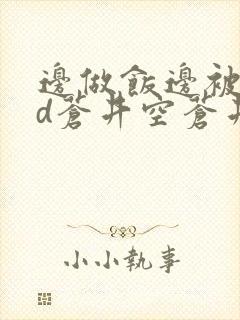 邊做飯邊被
d蒼井空蒼井
小小執事